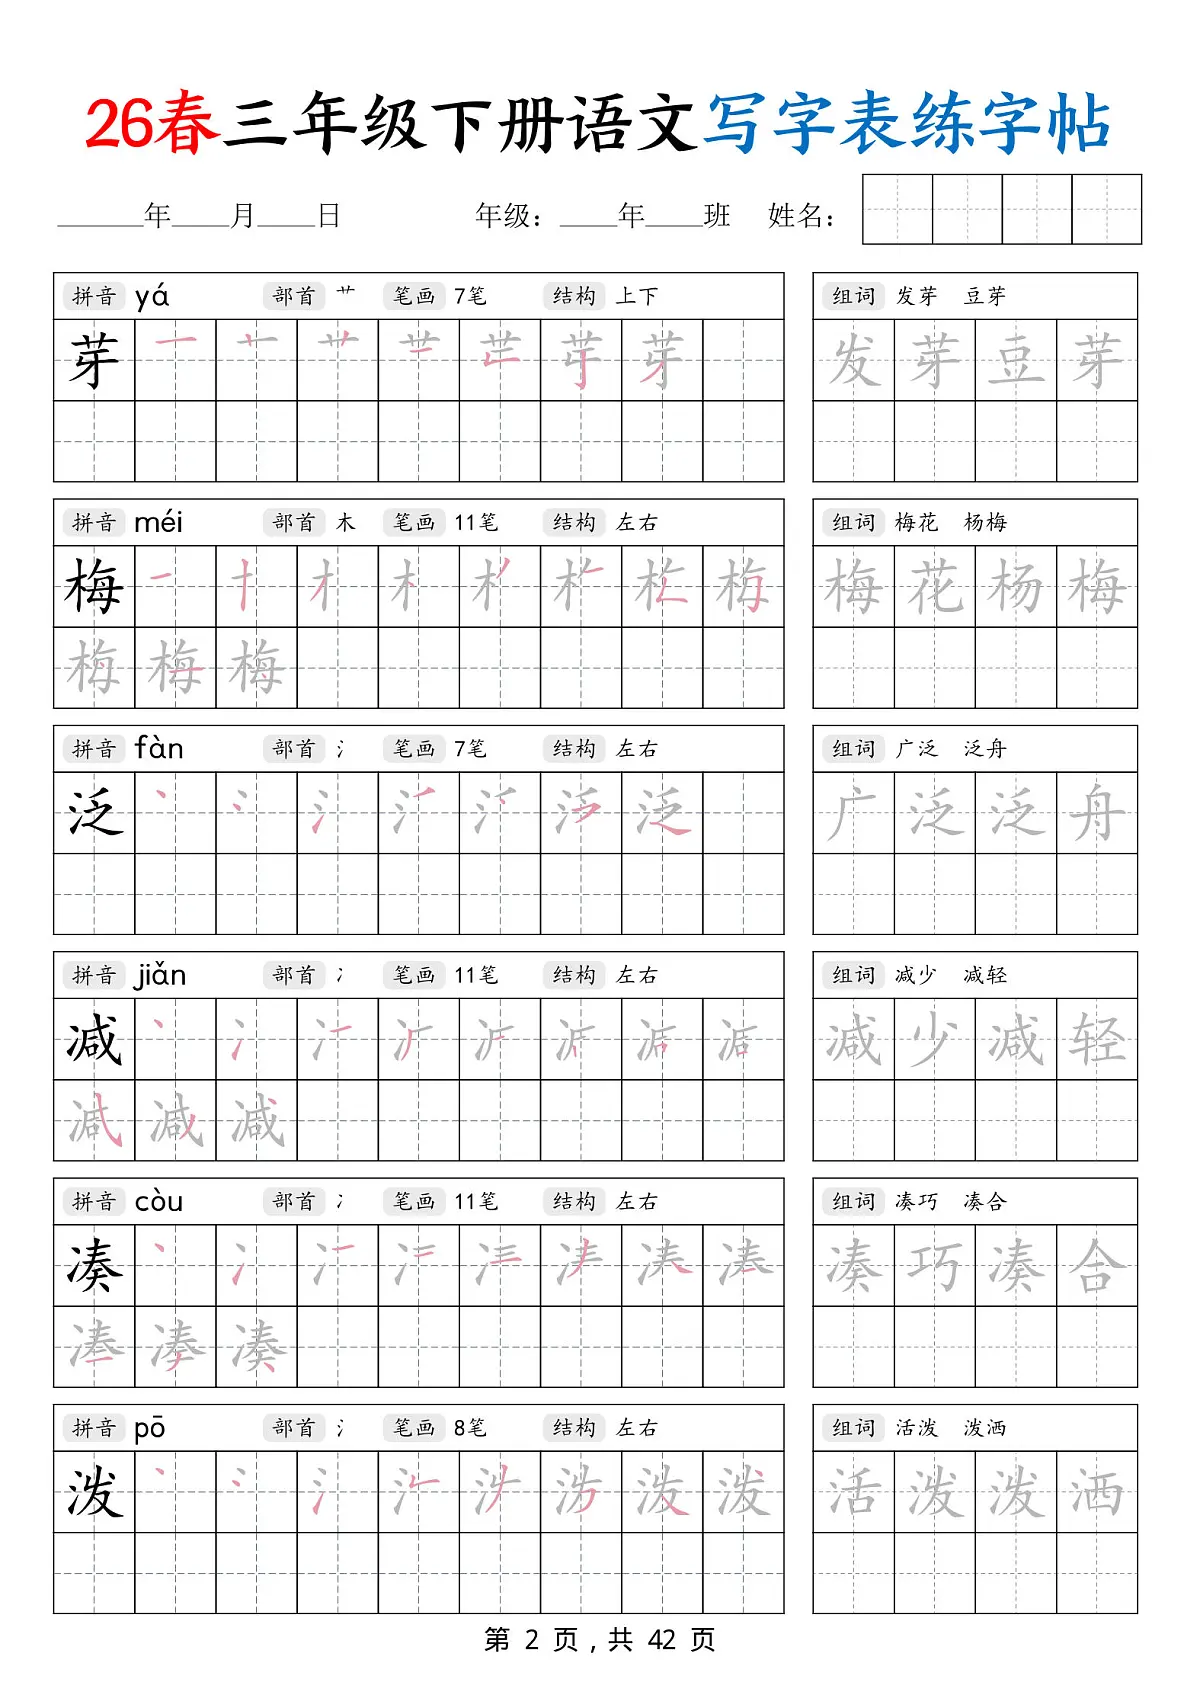 26春三年级下册语文写字表练字帖
______年____月____日 年级：____年____班 姓名：
拼音 yá 部首 艹 笔画 7笔 结构 上下 组词 发芽 豆芽
芽 发芽豆芽
拼音 méi 部首 木 笔画 11笔 结构 左右 组词 梅花 杨梅
梅 梅花杨梅
拼音 fàn 部首 氵 笔画 7笔 结构 左右 组词 广泛 泛舟
泛 广泛泛舟
拼音 jiǎn 部首 冫 笔画 11笔 结构 左右 组词 减少 减轻
减 减少减轻
拼音 còu 部首 冫 笔画 11笔 结构 左右 组词 凑巧 凑合
凑 凑巧凑合
拼音 pō 部首 氵 笔画 8笔 结构 左右 组词 活泼 泼洒
泼 活泼泼洒
第 2 页，共 42 页